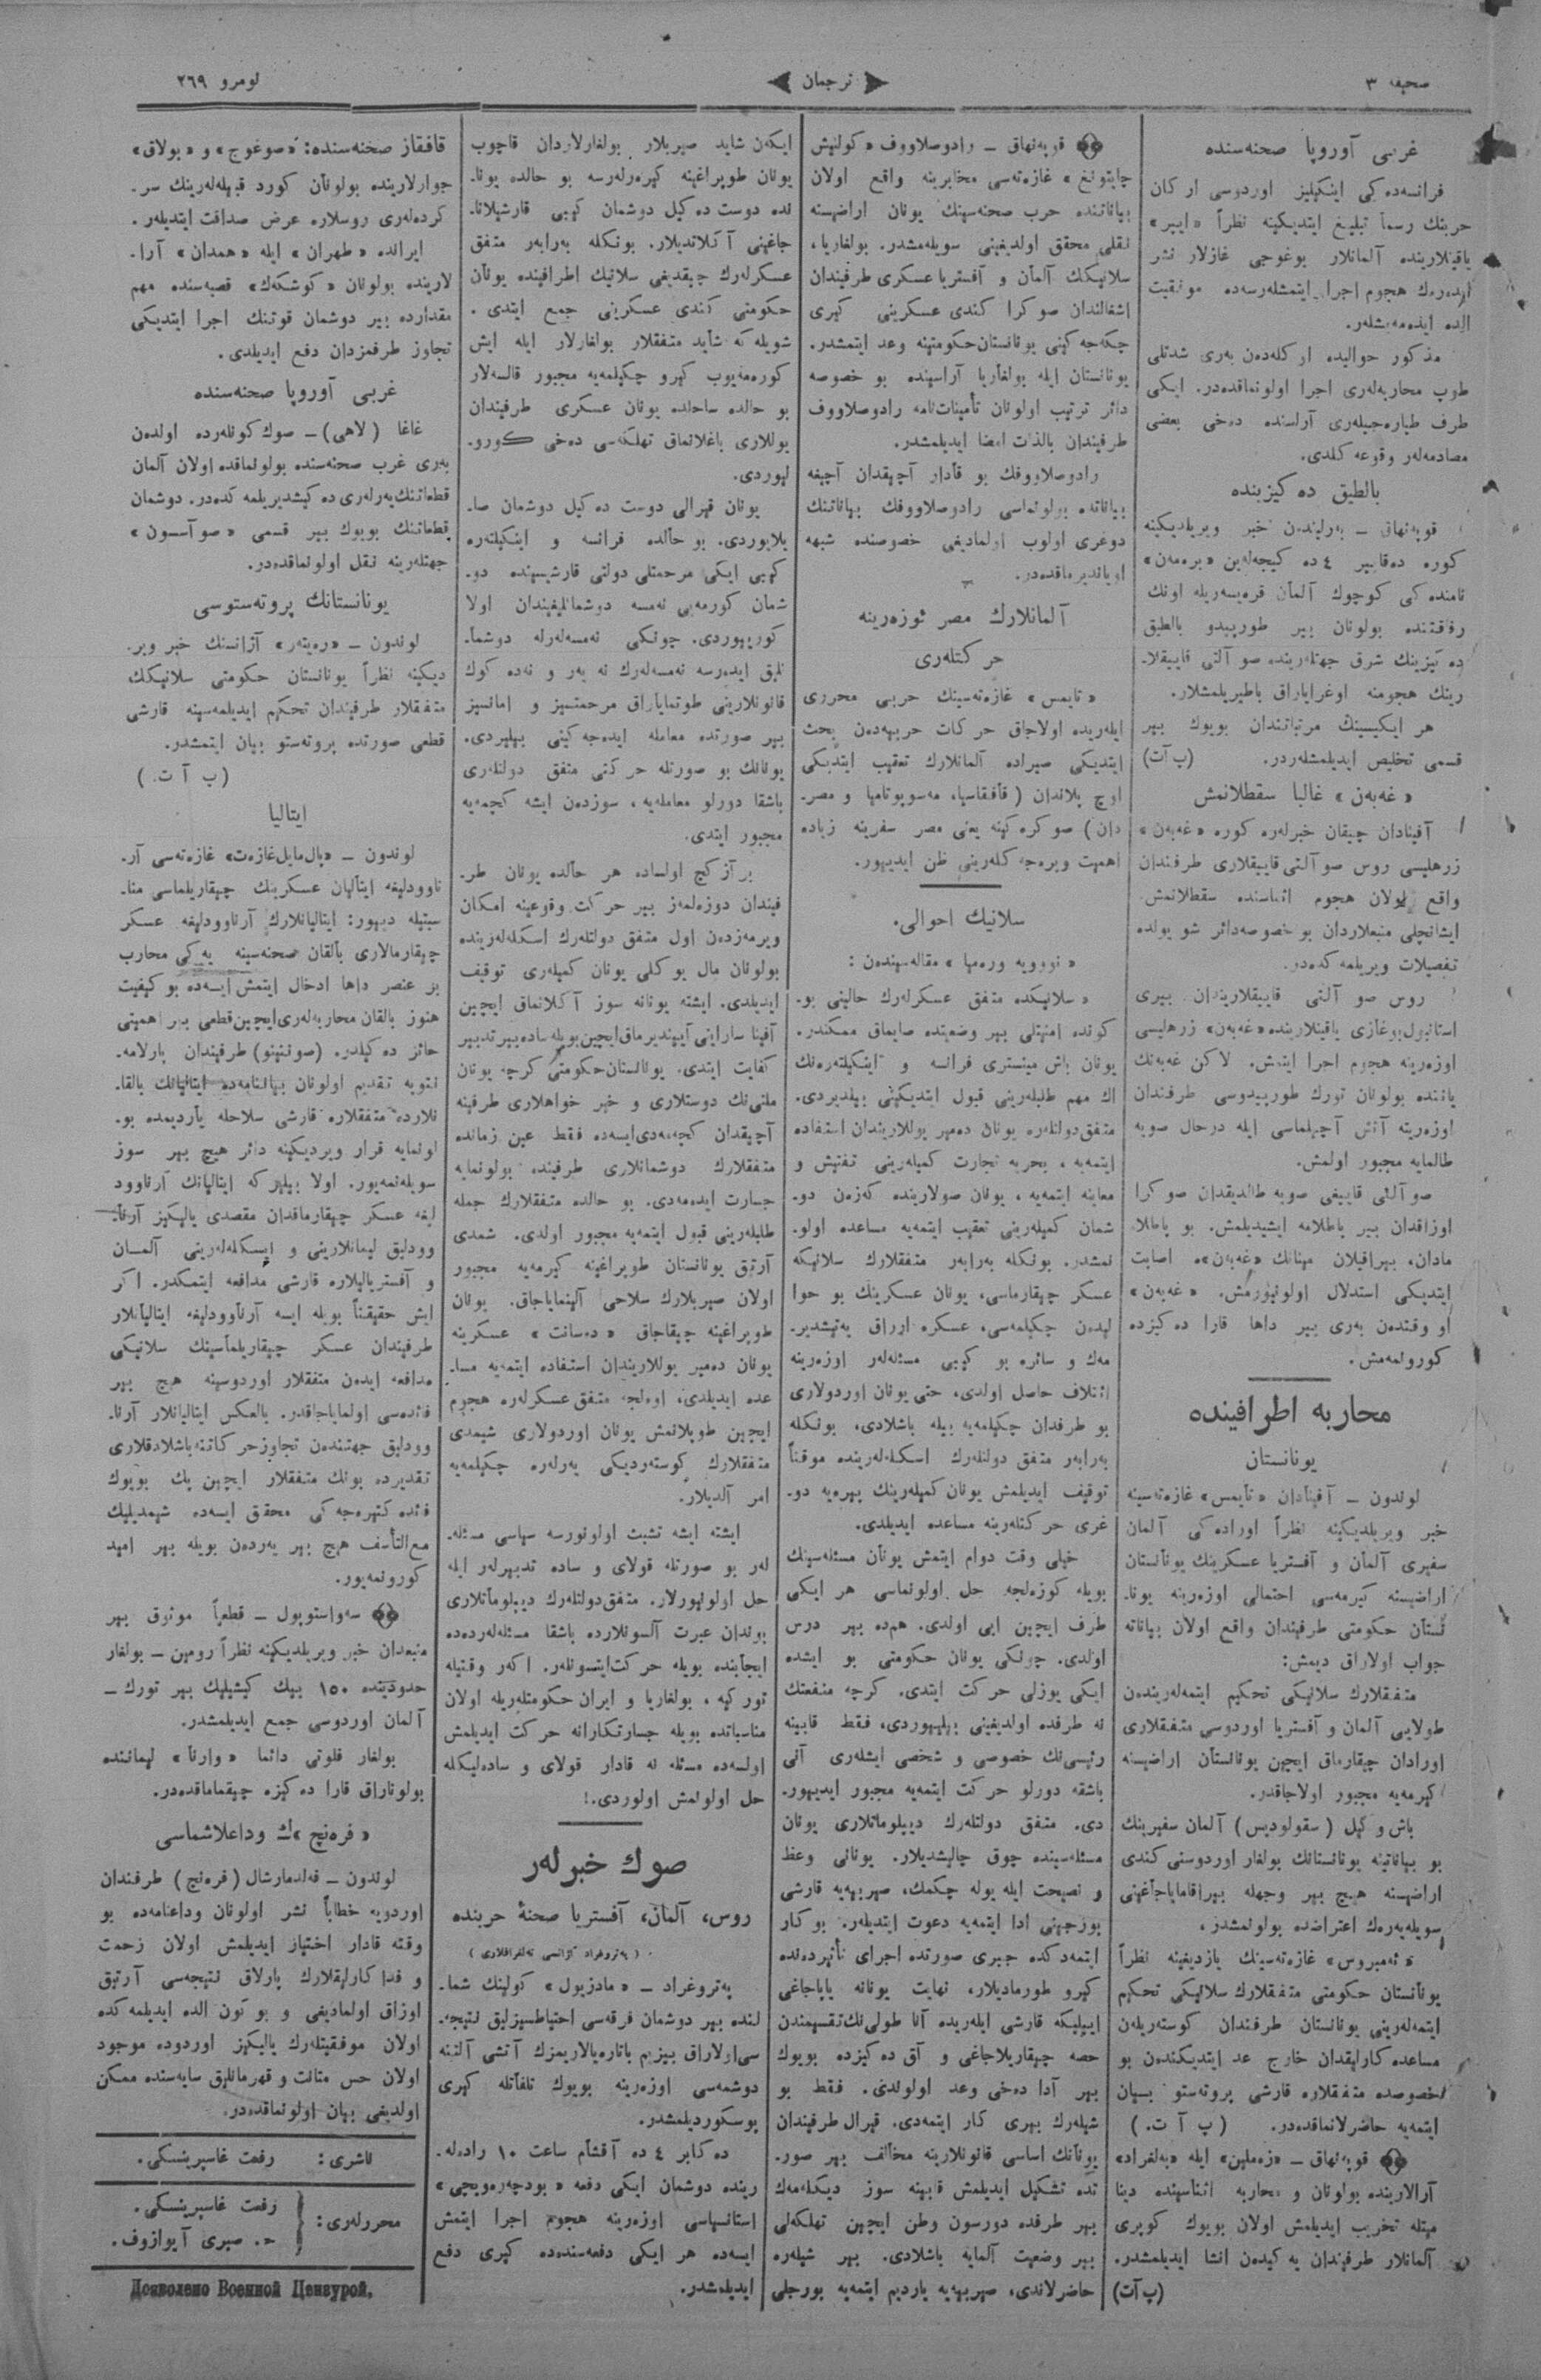 صحيفه ٣
ترجمان
نومرو ٢٦٩
غربى آوروپا صحنه‌سنده
فرانسه‌ده‌كى اينكليز اوردوسى اركان
حربنك رسماً تبليغ ايتديكينه نظراً «ايپر»
ياقينلارينده آلمانلار بوغوجى غازلار نشر
ايده‌رك هجوم اجرا ايتمشلرسه‌ده موفقيت
الده ايده‌مه‌مشلر.
مذكور حواليده اوكله‌دن به‌رى شدتلى
طوپ محاربه‌لرى اجرا اولونماقده‌در. ايكى
طرف طياره‌جيلرى آراسنده دخى بعضى
مصادمه‌لر وقوعه كلدى.
بالطيق ده‌كيزينده
قوپه‌نهاق ــ برليندن خبر ويريلديكينه
كوره ده‌قابر ٤ ده كيجه‌لين «بره‌مه‌ن»
نامنده‌كى كوچوك آلمان قره‌يسه‌ريله اونك
رفاقتنده بولونان بير طورپيدو بالطيق
ده‌كيزينك شرق جهتلرينده صو آلتى قاييقلا-
رينك هجومنه اوغراياراق باطيريلمشلار.
هر ايكيسينك مرتباتندان بويوك بير
قسمى تخليص ايديلمشلردر. (پ آت)
«غه‌به‌ن» غالبا سقطلانمش
آفينادان چيقان خبرلره كوره «غه‌به‌ن»
زرهليسى روس صو آلتى قاييقلارى طرفندان
واقع اولان هجوم اثناسنده سقطلانمش.
ايشانچلى منبعلاردان بو خصوصه‌دائر شو يولده
تفصيلات ويريلمه‌كده‌در.
روس صو آلتى قاييقلاريندان بيرى
استانبول بوغازى ياقينلارينده «غه‌به‌ن» زرهليسى
اوزه‌رينه هجوم اجرا ايتمش. لاكن غه‌به‌نك
ياننده بولونان تورك طورپيدوسى طرفندان
اوزه‌رينه آتش آچيلماسى ايله درحال صويه
طالمايه مجبور اولمش.
صو آلتى قاييغى صويه طالديقدان صوكرا
اوزاقدان بير پاطلامه ايشيديلمش. بو پاطلا-
مادان، بيراقيلان مينانك «غه‌به‌ن»ه اصابت
ايتديكى استدلال اولونيورمش. «غه‌به‌ن»
او وقتدن به‌رى بير داها قارا ده‌كيزده
كورونمه‌مش.
محاربه اطرافينده
يونانستان
لوندون ــ آفينادان «تايمس» غازه‌ته‌سينه
خبر ويريلديكينه نظراً اوراده‌كى آلمان
سفيرى آلمان و آفستريا عسكرينك يونانستان
اراضيسنه كيرمه‌سى احتمالى اوزه‌رينه يونا-
نستان حكومتى طرفيندان واقع اولان بياناته
جواب اولاراق ديمش:
متفقلارك سلانيكى تحكيم ايتمه‌لريندن
طولايى آلمان و آفستريا اوردوسى متفقلارى
اورادان چيقارماق ايچين يونانستان اراضيسنه
كيرمه‌يه مجبور اولاجاقدر.
باش وكيل (سقولوديس) آلمان سفيرينك
بو بياناتينه يونانستانك بولغار اوردوسنى كندى
اراضيسنه هيچ بير وجهله بيراقاماياجاغينى
سويله‌يه‌رك اعتراضده بولونمشدر.
«ئه‌مبروس» غازه‌ته‌سينك يازديغينه نظراً
يونانستان حكومتى متفقلارك سلانيكى تحكيم
ايتمه‌لرينى يونانستان طرفندان كوسته‌ريلن
مساعده‌كارلقدان خارج عد ايتديكندن بو
خصوصده متفقلاره قارشى پروته‌ستو بيان
ايتمه‌يه حاضرلانماقده‌در. (پ آ ت.)
قوپه‌نهاق ــ «زه‌ملين» ايله «به‌لغراد»
آرالارينده بولونان و محاربه اثناسينده دينا
ميتله تخريب ايديلمش اولان بويوك كوپرى
آلمانلار طرفيندان يه‌كيدن انشا ايديلمشدر.
(پ آت)
قوپه‌نهاق ــ رادوصلاووف «كولنيش
چايتونغ» غازه‌ته‌سى مخابرينه واقع اولان
بياناتنده حرب صحنه‌سينك يونان اراضيسنه
نقلى محقق اولديغينى سويله‌مشدر. بولغاريا،
سلانيكك آلمان و آفستريا عسكرى طرفيندان
اشغالندان صوكرا كندى عسكرينى كيرى
چكه‌جه‌كينى يونانستان حكومتينه وعد ايتمشدر.
يونانستان ايله بولغاريا آراسينده بو خصوصه
دائر ترتيب اولونان تأمينات‌نامه رادوصلاووف
طرفيندان بالذات امضا ايديلمشدر.
رادوصلاووفك بو قادار آچيقدان آچيغه
بياناتده بولونماسى رادوصلاووفك بياناتنك
دوغرى اولوب اولماديغى خصوصنده شبهه
اوياندير‌ماقده‌در.
آلمانلارك مصر ئوزه‌رينه
حركتلرى
«تايمس» غازه‌ته‌سينك حربى محررى
ايلريده اولاجاق حركات حربيه‌دن بحث
ايتديكى صيراده آلمانلارك تعقيب ايتديكى
اوچ پلاندان (قافقاسيا، مه‌سوپوتاميا و مصر-
دان) صوكره‌كينه يعنى مصر سفرينه زياده
اهميت ويره‌جه‌كلرينى ظن ايدييور.
سلانيك احوالى.
«نوويه وره‌ميا» مقاله‌سيندن:
«سلانيكده متفق عسكرلرك حالينى بو-
كونده امنيتلى بير وضعيتده صايماق ممكندر.
يونان باش مينسترى فرانسه و اينكيلتره‌نك
اك مهم طلبلرينى قبول ايتديكينى بيلديردى.
متفق دولتلره يونان ده‌مير يوللاريندان استفاده
ايتمه‌يه، بحريه تجارت كميلرينى تفتيش و
معاينه ايتمه‌يه، يونان صولارينده كه‌زه‌ن دو-
شمان كميلرينى تعقيب ايتمه‌يه مساعده اولو-
نمشدر. بونكله به‌رابه‌ر متفقلارك سلانيكه
عسكر چيقارماسى، يونان عسكرينك بو حوا
ليدن چكيلمه‌سى، عسكره ارزاق يه‌تيشدير-
مه‌ك و سائره بو كيبى مسئله‌لر اوزه‌رينه
ائتلاف حاصل اولدى. حتى يونان اوردولارى
بو طرفدان چكيلمه‌يه بيله باشلادى. بونكله
به‌رابه‌ر متفق دولتلرك اسكله‌لرينده موقتاً
توقيف ايديلمش يونان كميلرينك بيره‌يه دو-
غرى حركتلرينه مساعده ايديلدى.
خيلى وقت دوام ايتمش يونان مسئله‌سينك
بويله كوزه‌لجه حل اولونماسى هر ايكى
طرف ايچين ايى اولدى. هم‌ده بير درس
اولدى. چونكى يونان حكومتى بو ايشده
ايكى يوزلى حركت ايتدى. كرچه منفعتك
نه طرفده اولديغينى بيلييوردى، فقط قابينه
رئيسى‌نك خصوصى و شخصى ايشلرى آنى
باشقه دورلو حركت ايتمه‌يه مجبور ايدييور.
دى. متفق دولتلرك ديپلوماتلارى يونان
مسئله‌سينده چوق چاليشديلار. يونانى وعظ
و نصيحت ايله يوله چكمك، صيربيه‌يه قارشى
بورجينى ادا ايتمه‌يه دعوت ايتديلر. بو كار
ايتمه‌دكده جبرى صورتده اجراى تأثيردن‌ده
كيرو طورماديلار، نهايت يونانه ياپاجاغى
اييليكه قارشى ايلريده آنا طولى‌نك تقسيمندن
حصه چيقاريلاجاغى و آق ده‌كيزده بويوك
بير آدا دخى وعد اولوندى. فقط بو
شيلرك بيرى كار ايتمه‌دى. قيرال طرفيندان
يونانك اساسى قانونلارينه مخالف بير صور-
تده تشكيل ايديلمش قابينه سوز ديكله‌مه‌ك
بير طرفده دورسون وطن ايچين تهلكه‌لى
بير وضعيت آلمايه باشلادى. بير شيلره
حاضرلاندى، صيربيه‌يه يارديم ايتمه‌يه بورجلى
ايكه‌ن شايد صيربلار بولغارلاردان قاچوب
يونان طوپراغينه كيره‌رلرسه بو حالده يونا-
نده دوست ده‌كيل دوشمان كيبى قارشيلانا-
جاغينى آكلاتديلار. بونكله به‌رابه‌ر متفق
عسكرلرك چيقديغى سلانيك اطرافينده يونان
حكومتى كندى عسكرينى جمع ايتدى.
شويله كه شايد متفقلار بولغارلار ايله ايش
كوره‌مه‌يوب كيرو چكيلمه‌يه مجبور قالسه‌لار
بو حالده ساحلده يونان عسكرى طرفيندان
يوللارى باغلانماق تهلكه‌سى دخى كورو-
لييوردى.
يونان قيرالى دوست ده‌كيل دوشمان صا-
يلايوردى. بو حالده فرانسه و اينكيلتره
كيبى ايكى مرحمتلى دولتى قارشيسينده دو-
شمان كورمه‌يى نه‌مسه دوشمانليغيندان اولا
كورييوردى. چونكى نه‌مسه‌لرله دوشما-
نليق ايده‌رسه نه‌مسه‌لرك نه يه‌ر و نه‌ده كوك
قانونلارينى طوتماياراق مرحمتسيز و امانسيز
بير صورتده معامله ايده‌جه‌كينى بيليردى.
يونانك بو صورتله حركتى متفق دولتلرى
باشقا دورلو معامله‌يه، سوزدن ايشه كچمه‌يه
مجبور ايتدى.
بر آز كچ اولساده هر حالده يونان طر-
فيندان دوزه‌لمه‌ز بير حركت وقوعينه امكان
ويرمه‌زدن اول متفق دولتلرك اسكله‌لرينده
بولونان مال يوكلى يونان كميلرى توقيف
ايديلدى. ايشته يونانه سوز آكلاتماق ايچين
آفينا سارايينى آييندير‌ماق ايچين بويله ساده بير تدبير
كفايت ايتدى. يونانستان حكومتى كرچه يونان
ملتى‌نك دوستلارى و خير خواهلارى طرفينه
آچيقدان كچمه‌دى‌ايسه‌ده فقط عين زمانده
متفقلارك دوشمانلارى طرفينده بولونمايه
جسارت ايده‌مه‌دى. بو حالده متفقلارك جمله
طلبلرينى قبول ايتمه‌يه مجبور اولدى. شمدى
آرتق يونانستان طوپراغينه كيرمه‌يه مجبور
اولان صيربلارك سلاحى آلينماياجاق. يونان
طوپراغينه چيقاجاق «ده‌سانت» عسكرينه
يونان ده‌مير يوللاريندان استفاده ايتمه‌يه مسا-
عده ايديلدى، اولجه متفق عسكرلره هجوم
ايچين طوپلانمش يونان اوردولارى شيمدى
متفقلارك كوسته‌رديكى يه‌رلره چكيلمه‌يه
امر آلديلار.
ايشته ايشه تشبث اولونورسه سياسى مسئله-
لر بو صورتله قولاى و ساده تدبيرلر ايله
حل اولونيورلار. متفق دولتلرك ديپلوماتلارى
بوندان عبرت آلسونلارده باشقا مسئله‌لرده‌ده
ايجابنده بويله حركت ايتسونلر. اكر وقتيله
توركيه، بولغاريا و ايران حكومتلريله اولان
مناسباتده بويله جسارتكارانه حركت ايديلمش
اولسه‌ده مسئله نه قادار قولاى و ساده‌ليكله
حل اولونمش اولوردى.!
صوك خبرلر
روس، آلمان، آفستريا صحنهٔ حربنده
(په‌تروغراد آژانسى تلغرافلارى)
په‌تروغراد ــ «مادزيول» كولينك شما-
لنده بير دوشمان فرقه‌سى احتياطسيزليق نتيجه-
سى‌اولاراق بيزيم باتاره‌يالاريمزك آتشى آلتنه
دوشمه‌سى اوزه‌رينه بويوك تلفاتله كيرى
پوسكورديلمشدر.
ده‌كابر ٤ ده آقشام ساعت ١٠ راده‌لە-
رينده دوشمان ايكى دفعه «بودچه‌ره‌ويچى»
استانسياسى اوزه‌رينه هجوم اجرا ايتمش
ايسه‌ده هر ايكى دفعه‌سنده‌ده كيرى دفع
ايديلمشدر.
قافقاز صحنه‌سنده: «صوغوج» و «بولاق»
جوارلارينده بولونان كورد قبيله‌لرينك سر-
كرده‌لرى روسلاره عرض صداقت ايتديلر.
ايرانده «طهران» ايله «همدان» آرا-
لارينده بولونان «كوشكه‌ك» قصبه‌سنده مهم
مقدارده بير دوشمان قوتنك اجرا ايتديكى
تجاوز طرفمزدان دفع ايديلدى.
غربى آوروپا صحنه‌سنده
غاغا (لاهى) ــ صوك كونلرده اولدن
به‌رى غرب صحنه‌سنده بولونماقده اولان آلمان
قطعاتنك يه‌رلرى ده‌كيشديريلمه‌كده‌در. دوشمان
قطعاتنك بويوك بير قسمى «صوآسسون»
جهتلرينه نقل اولونماقده‌در.
يونانستانك پروته‌ستوسى
لوندون ــ «ره‌يته‌ر» آژانسنك خبر وير-
ديكينه نظراً يونانستان حكومتى سلانيكك
متفقلار طرفيندان تحكيم ايديلمه‌سينه قارشى
قطعى صورتده پروته‌ستو بيان ايتمشدر.
(پ آ ت.)
ايتاليا
لوندون ــ «پال‌مايل‌غازه‌ت» غازه‌ته‌سى آر-
ناوودليغه ايتاليان عسكرينك چيقاريلماسى منا-
سبتيله دييور: ايتاليانلارك آرناوودليغه عسكر
چيقارمالارى بالقان صحنه‌سينه يه‌كى محارب
بر عنصر داها ادخال ايتمش ايسه‌ده بو كيفيت
هنوز بالقان محاربه‌لرى ايچين قطعى بير اهميتى
حائز ده‌كيلدر. (صوننينو) طرفيندان پارلامه-
نتويه تقديم اولونان بياننامه‌ده ايتاليانك بالقا-
نلارده متفقلاره قارشى سلاحله يارديمده بو-
لونمايه قرار ويرديكينه دائر هيچ بير سوز
سويله‌نمه‌يور. اولا بيلير كه ايتاليانك آرناوود
ليغه عسكر چيقارماقدان مقصدى يالكيز آرنا-
وودليق ليمانلارينى و ايسكله‌لرينى آلمان
و آفسترياليلاره قارشى مدافعه ايتمكدر. اكر
ايش حقيقتاً بويله ايسه آرناوودليغه ايتاليانلار
طرفيندان عسكر چيقاريلماسينك سلانيكى
مدافعه ايدن متفقلار اوردوسينه هيچ بير
فائده‌سى اولماياجاقدر. بالعكس ايتاليانلار آرنا-
وودليق جهتندن تجاوز حركاتنه باشلادقلارى
تقديرده بونك متفقلار ايچين پك بويوك
فائده كتيره‌جه‌كى محقق ايسه‌ده شيمديليك
مع‌التأسف هيچ بير يه‌ردن بويله بير اميد
كورونمه‌يور.
سه‌واستوپول ــ قطعياً موثوق بير
منبعدان خبر ويريلديكينه نظراً رومين ــ بولغار
حدودينده ١٥٠ بيك كيشيليك بير تورك ــ
آلمان اوردوسى جمع ايديلمشدر.
بولغار فلوتى دائما «وارنا» ليماننده
بولوناراق قارا ده‌كيزه چيقماماقده‌در.
«فره‌نچ»ك وداعلاشماسى
لوندون ــ فه‌لدمارشال (فره‌نچ) طرفندان
اوردويه خطاباً نشر اولونان وداعنامه‌ده بو
وقته قادار اختيار ايديلمش اولان زحمت
و فداكارليقلارك پارلاق نتيجه‌سى آرتيق
اوزاق اولماديغى و بو كون الده ايديلمه‌كده
اولان موفقيتلرك يالكيز اوردوده موجود
اولان حس متانت و قهرمانليق سايه‌سنده ممكن
اولديغى بيان اولونماقده‌در.
ناشرى: رفعت غاسپرينسكى.
محررلرى: رفعت غاسپرينسكى.
ح. صبرى آيوازوف.
Дозволено Военной Цензурой.